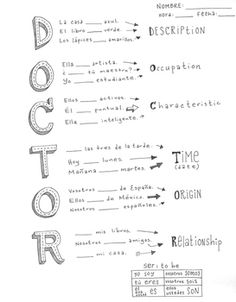 NOMBRE:
HORA: FECHA:
D
La casa azul.
El libro verde.
Los lápices amarillos.
DESCRIPTION
O
Ella artista.
¿ tú maestro?
Yo estudiante.
OCCUPATION
C
Ellos activos.
Él puntual.
Ella inteligente.
Characteristic
T
las tres de la tarde.
Hoy lunes.
Mañana martes.
TIME
(DATE)
O
Vosotros de España.
Ellos de México.
Nosotros españoles.
ORIGIN
R
mis libros.
Nosotros amigos.
mi casa.
RElationship
ser: to be
yo soy nosotros somos
tú eres vosotros sois
él ella es ellos ustedes SON